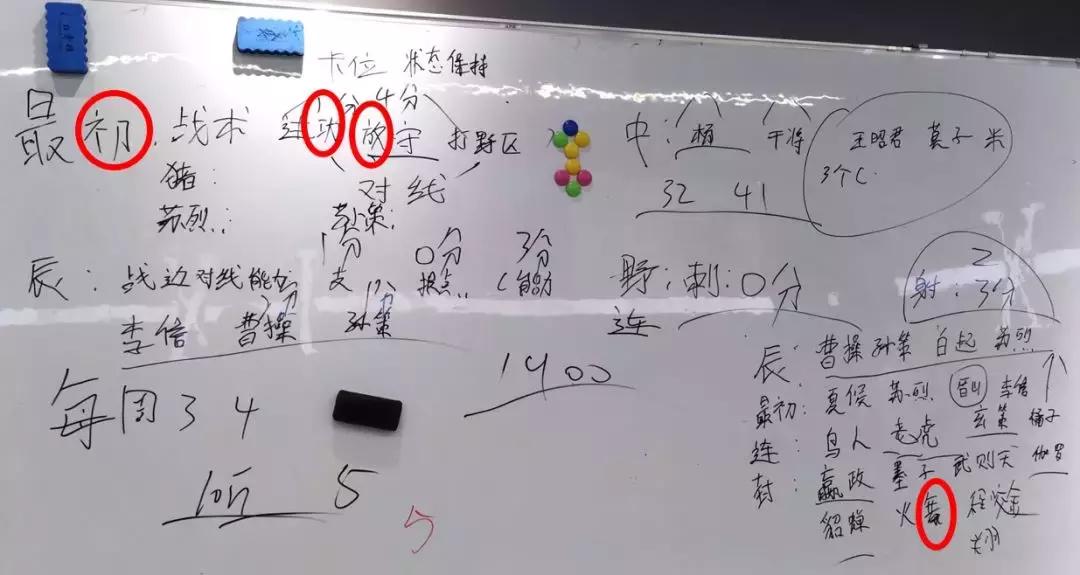 卡位 状态保持
1分 4分
最初:战术 进攻 放守 打野区
猪:
对线
苏烈: 孙策:
中: 杨 干将
32 41
王昭君 莫子 米
3个C
1分 0分 3分
辰: 战边对线能力 支 报点 C能力
2分 1分
李信 曹操 孙策
野:刺:0分
连
2
射:3分
1400
每周34
5
5
辰: 曹操 孙策 白起 苏烈
最初: 夏侯 苏烈 李信
连: 鸟人 老虎 玄策 橘子
封: 嬴政 墨子 武则天 伽罗
貂蝉 火舞